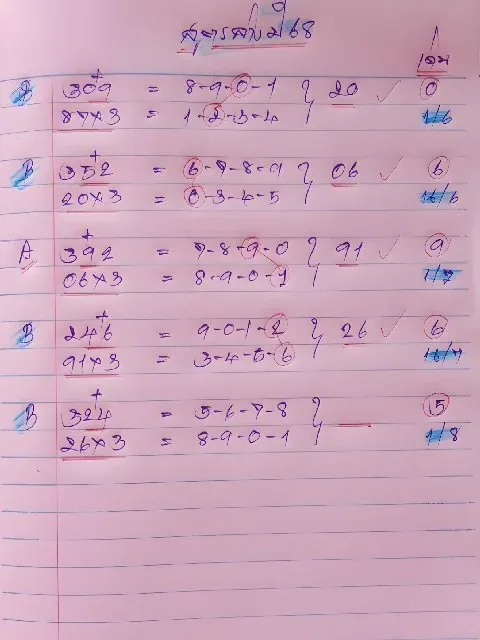 สูตรสามปี 68
เด่น
A 309 = 8-9-0-1 } 20 ✓ 0
87×3 = 1-2-3-4 1/6
B 352 = 6-7-8-9 } 06 ✓ 6
20×3 = 0-3-4-5 16/6
A 392 = 7-8-9-0 } 91 ✓ 9
06×3 = 8-9-0-1 1/7
B 246 = 9-0-1-2 } 26 ✓ 6
91×3 = 3-4-5-6 16/7
B 324 = 5-6-7-8 } 5
26×3 = 8-9-0-1 1/8